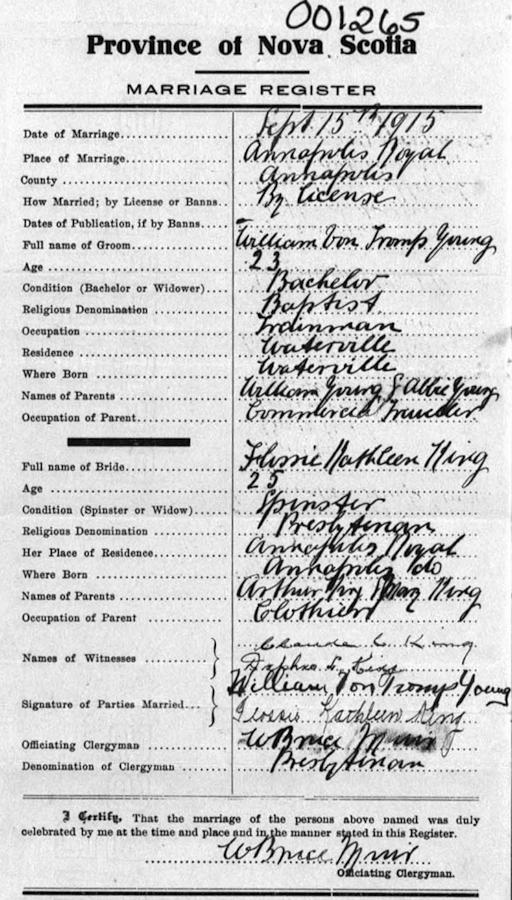 001265
Province of Nova Scotia
MARRIAGE REGISTER
Date of Marriage.......... Sept 15th 1915
Place of Marriage.......... Annapolis Royal
County .......... Annapolis
How Married; by License or Banns.. By License
Dates of Publication, if by Banns.......... -
Full name of Groom.......... William Von Tromp Young
Age .......... 23
Condition (Bachelor or Widower).... Bachelor
Religious Denomination .......... Baptist
Occupation .......... Trainman
Residence .......... Waterville
Where Born .......... Waterville
Names of Parents .......... William Young & Allie Young
Occupation of Parent.......... Commercial Traveler
Full name of Bride.......... Flossie Kathleen King
Age .......... 25
Condition (Spinster or Widow)..... Spinster
Religious Denomination .......... Presbyterian
Her Place of Residence.......... Annapolis Royal
Where Born .......... Annapolis do
Names of Parents .......... Arthur King Mary King
Occupation of Parent .......... Clothier
Names of Witnesses .......... Claude C. King
Daphne King
Signature of Parties Married... William Von Tromp Young
Flossie Kathleen King
Officiating Clergyman .......... W Bruce Muir
Denomination of Clergyman .......... Presbyterian
I Certify, That the marriage of the persons above named was duly
celebrated by me at the time and place and in the manner stated in this Register.
W Bruce Muir
Officiating Clergyman.